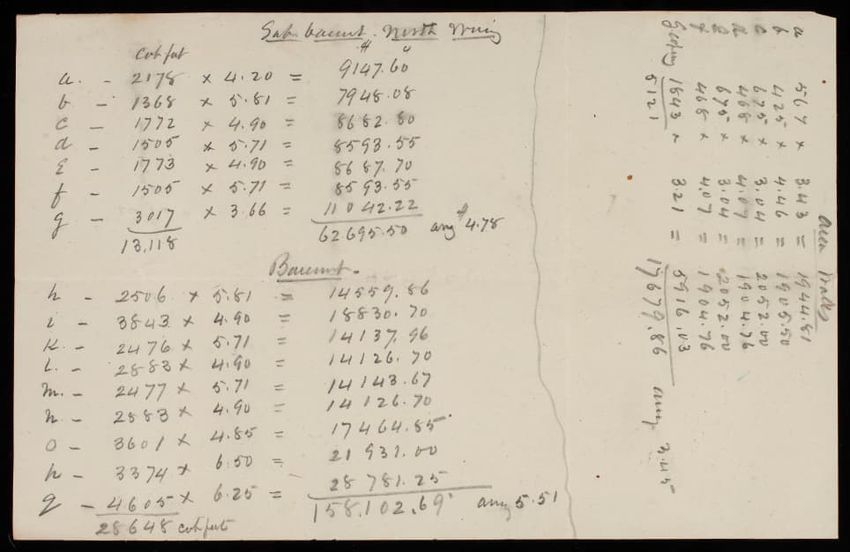 Sub basement. North Wing
cub feet $ c
a. - 2178 x 4.20 = 9147.60
b - 1368 x 5.81 = 7948.08
c - 1772 x 4.90 = 8682.80
d - 1505 x 5.71 = 8593.55
E - 1773 x 4.90 = 8687.70
f - 1505 x 5.71 = 8593.55
g - 3017 x 3.66 = 11042.22
13,118 62695.50 avg $4.78
Basemt.
h - 2506 x 5.81 = 14559.86
i - 3843 x 4.90 = 18830.70
K - 2476 x 5.71 = 14137.96
L - 2883 x 4.90 = 14126.70
m. - 2477 x 5.71 = 14143.67
n - 2883 x 4.90 = 14126.70
o - 3601 x 4.85 = 17464.85
p - 3374 x 6.50 = 21931.00
q - 4605 x 6.25 = 28781.25
28648 cub feet 158,102.69 avg 5.51
Area
a 567 x 3.43 = 1944.81
b 425 x 4.46 = 1905.50
c 675 x 3.04 = 2052.00
d 468 x 4.07 = 1904.76
E 675 x 3.04 = 2052.00
f 468 x 4.07 = 1904.76
g 1843 x 3.21 = 5916.03
5121 17679.86 avg 3.45